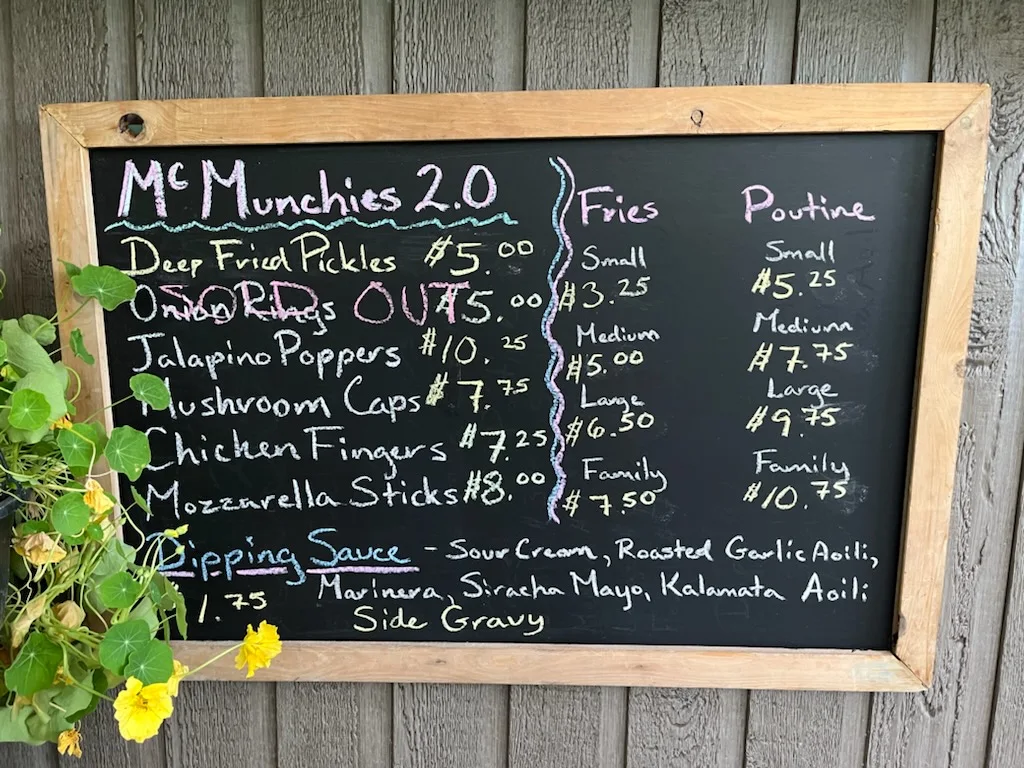 McMunchies 2.0
Deep Fried Pickles $5.00
Onion Rings $5.00
SOLD OUT
Jalapino Poppers $10.25
Mushroom Caps $7.75
Chicken Fingers $7.25
Mozzarella Sticks $8.00
Fries
Small
$3.25
Medium
$5.00
Large
$6.50
Family
$7.50
Poutine
Small
$5.25
Medium
$7.75
Large
$9.75
Family
$10.75
Dipping Sauce - Sour Cream, Roasted Garlic Aoili,
1.75 Marinera, Siracha Mayo, Kalamata Aoili
Side Gravy